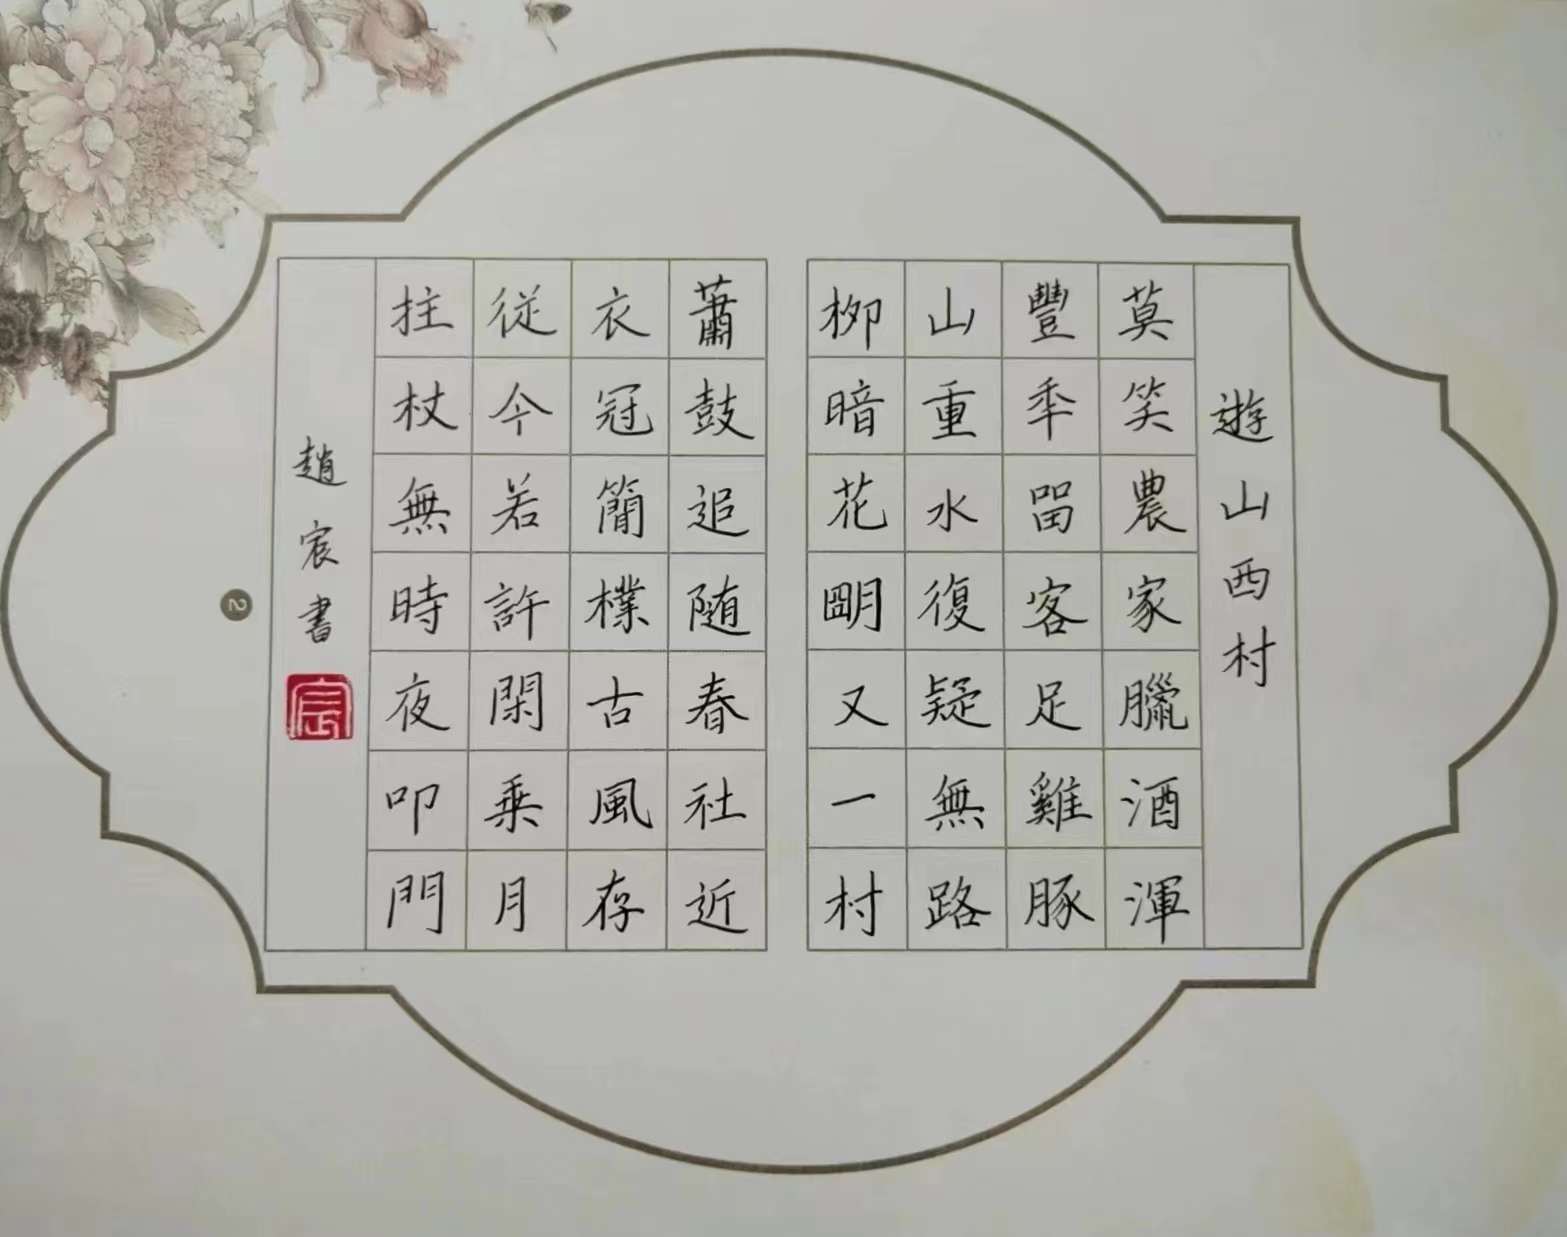 遊山西村
莫笑農家臘酒渾
豐秊留客足雞豚
山重水復疑無路
柳暗花朙又一村
蕭鼓追随春社近
衣冠簡樸古風存
従今若許閑乗月
拄杖無時夜叩門
趙宸書
宸
2